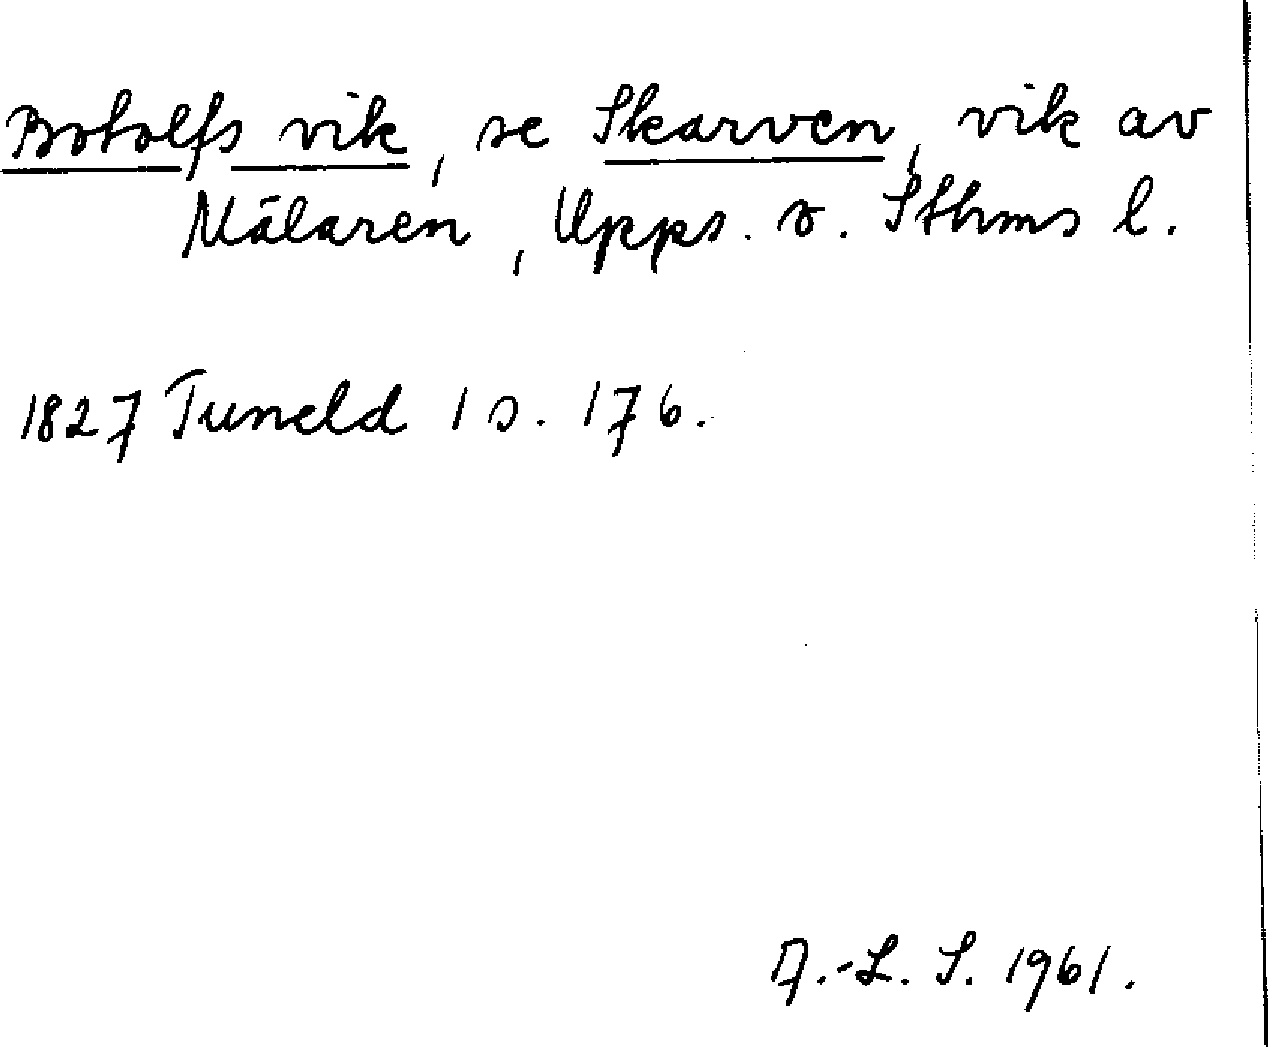 Botolfs vik, se Skarven, vik av
Mälaren, Upps. o. Sthms l.
1827 Tuneld 1 s. 176.
A.-L. S. 1961.